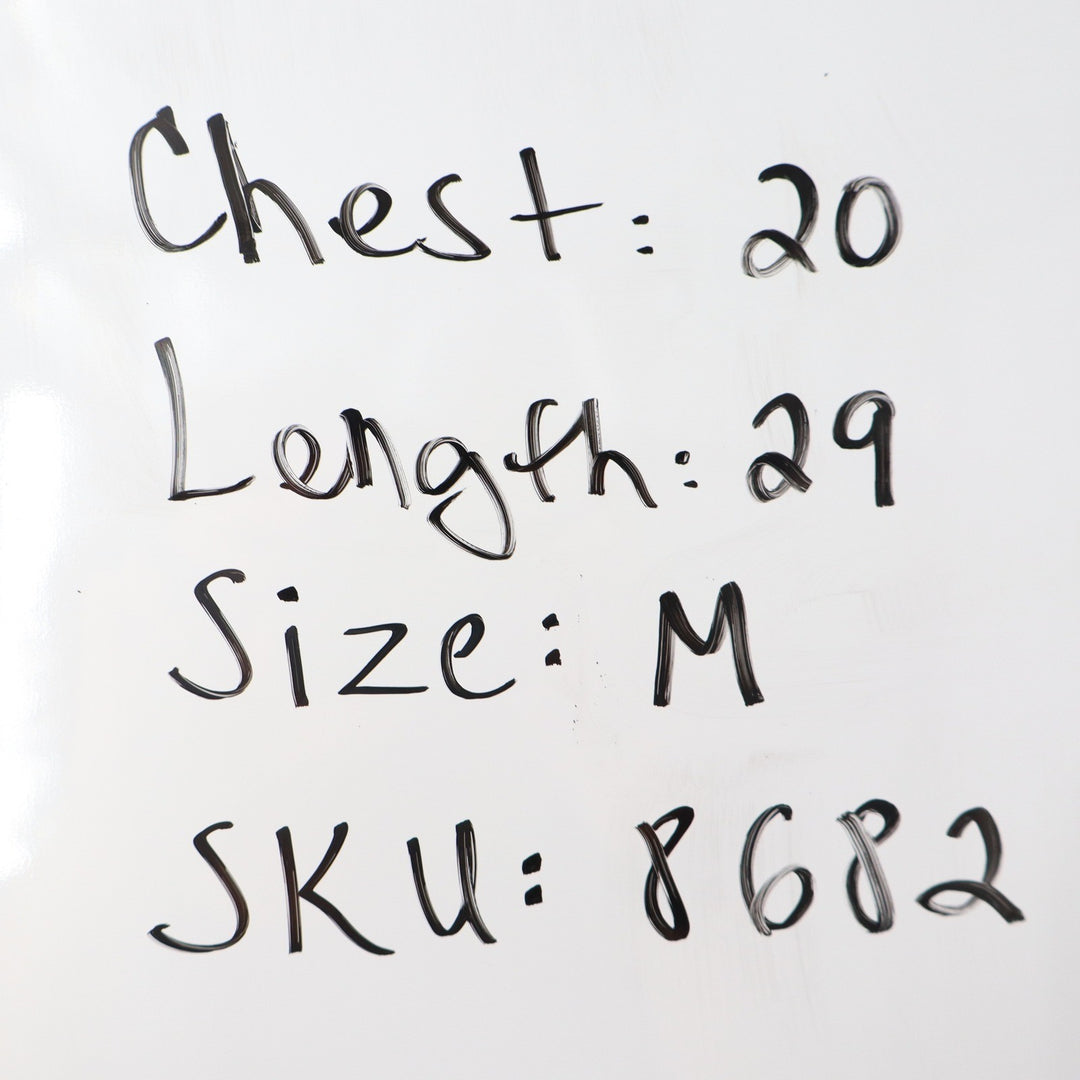 Chest: 20
Length: 29
Size: M
SKU: 8682